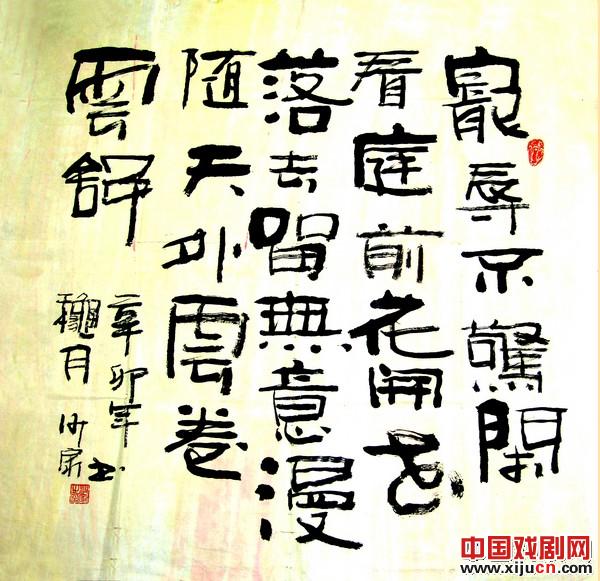 寵辱不驚閑
看庭前花開花
落去留無意漫
随天外雲卷
雲舒
辛卯年
龝月
中国戏剧网
www.xijucn.com